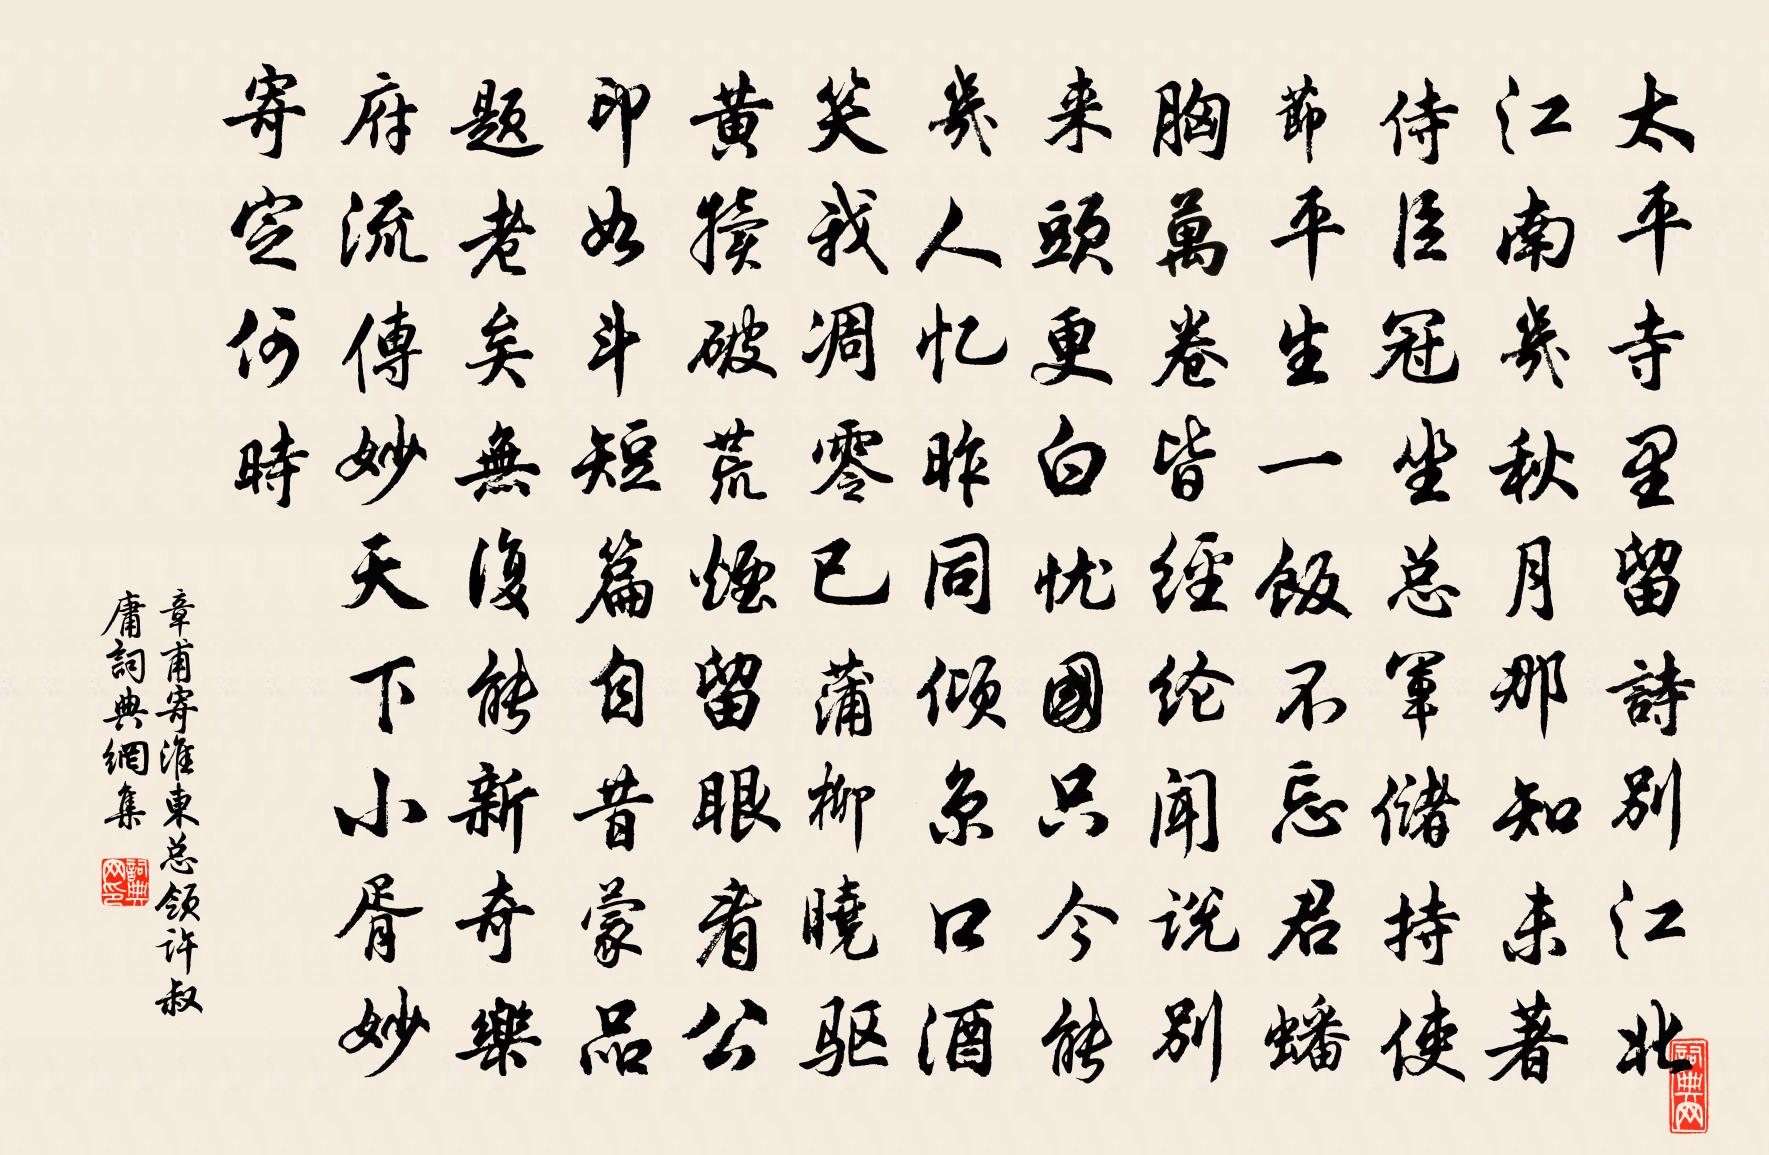 太平寺里留詩别江北
江南幾秋月那知未著
侍臣冠坐总軍儲持使
節平生一飯不忘君蟠
胸萬卷皆經纶闻说别
来頭更白忧國只今能
幾人忆昨同倾京口酒
笑我凋零已蒲柳曉驱
黄犢破荒煙留眼看公
印如斗短篇自昔蒙品
題老矣無復能新奇樂
府流傳妙天下小胥妙
寄定何時
章甫寄淮東总领许叔
庸詞典網集
詞典网印
詞典网